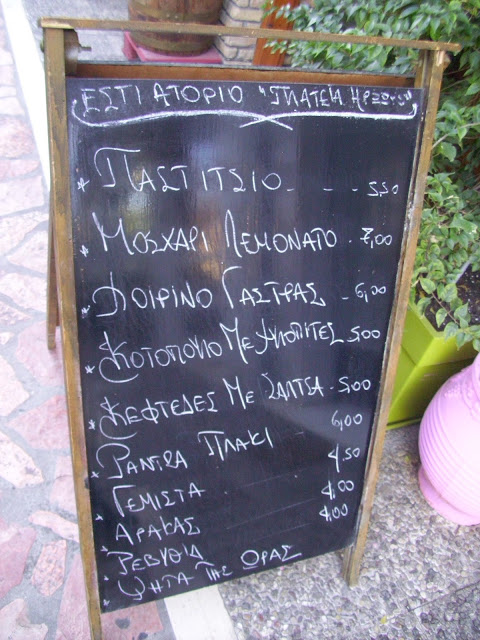 ΕΣΤΙΑΤΟΡΙΟ "ΠΛΑΤΕΙΑ ΗΡΩΩΝ"
* ΠΑΣΤΙΤΣΙΟ - - - 5,50
* ΜΟΣΧΑΡΙ ΛΕΜΟΝΑΤΟ - 7,00
* ΧΟΙΡΙΝΟ ΓΑΣΤΡΑΣ - 6,00
* ΚΟΤΟΠΟΥΛΟ ΜΕ ΧΥΛΟΠΙΤΕΣ 5,00
* ΚΕΦΤΕΔΕΣ ΜΕ ΣΑΛΤΣΑ - 5,00
* ΠΛΑΚΙ 6,00
* ΓΕΜΙΣΤΑ 4,50
* ΑΡΑΚΑΣ 4,00
* ΡΕΒΥΘΙΑ 4,00
* ΨΗΤΑ ΤΗΣ ΩΡΑΣ